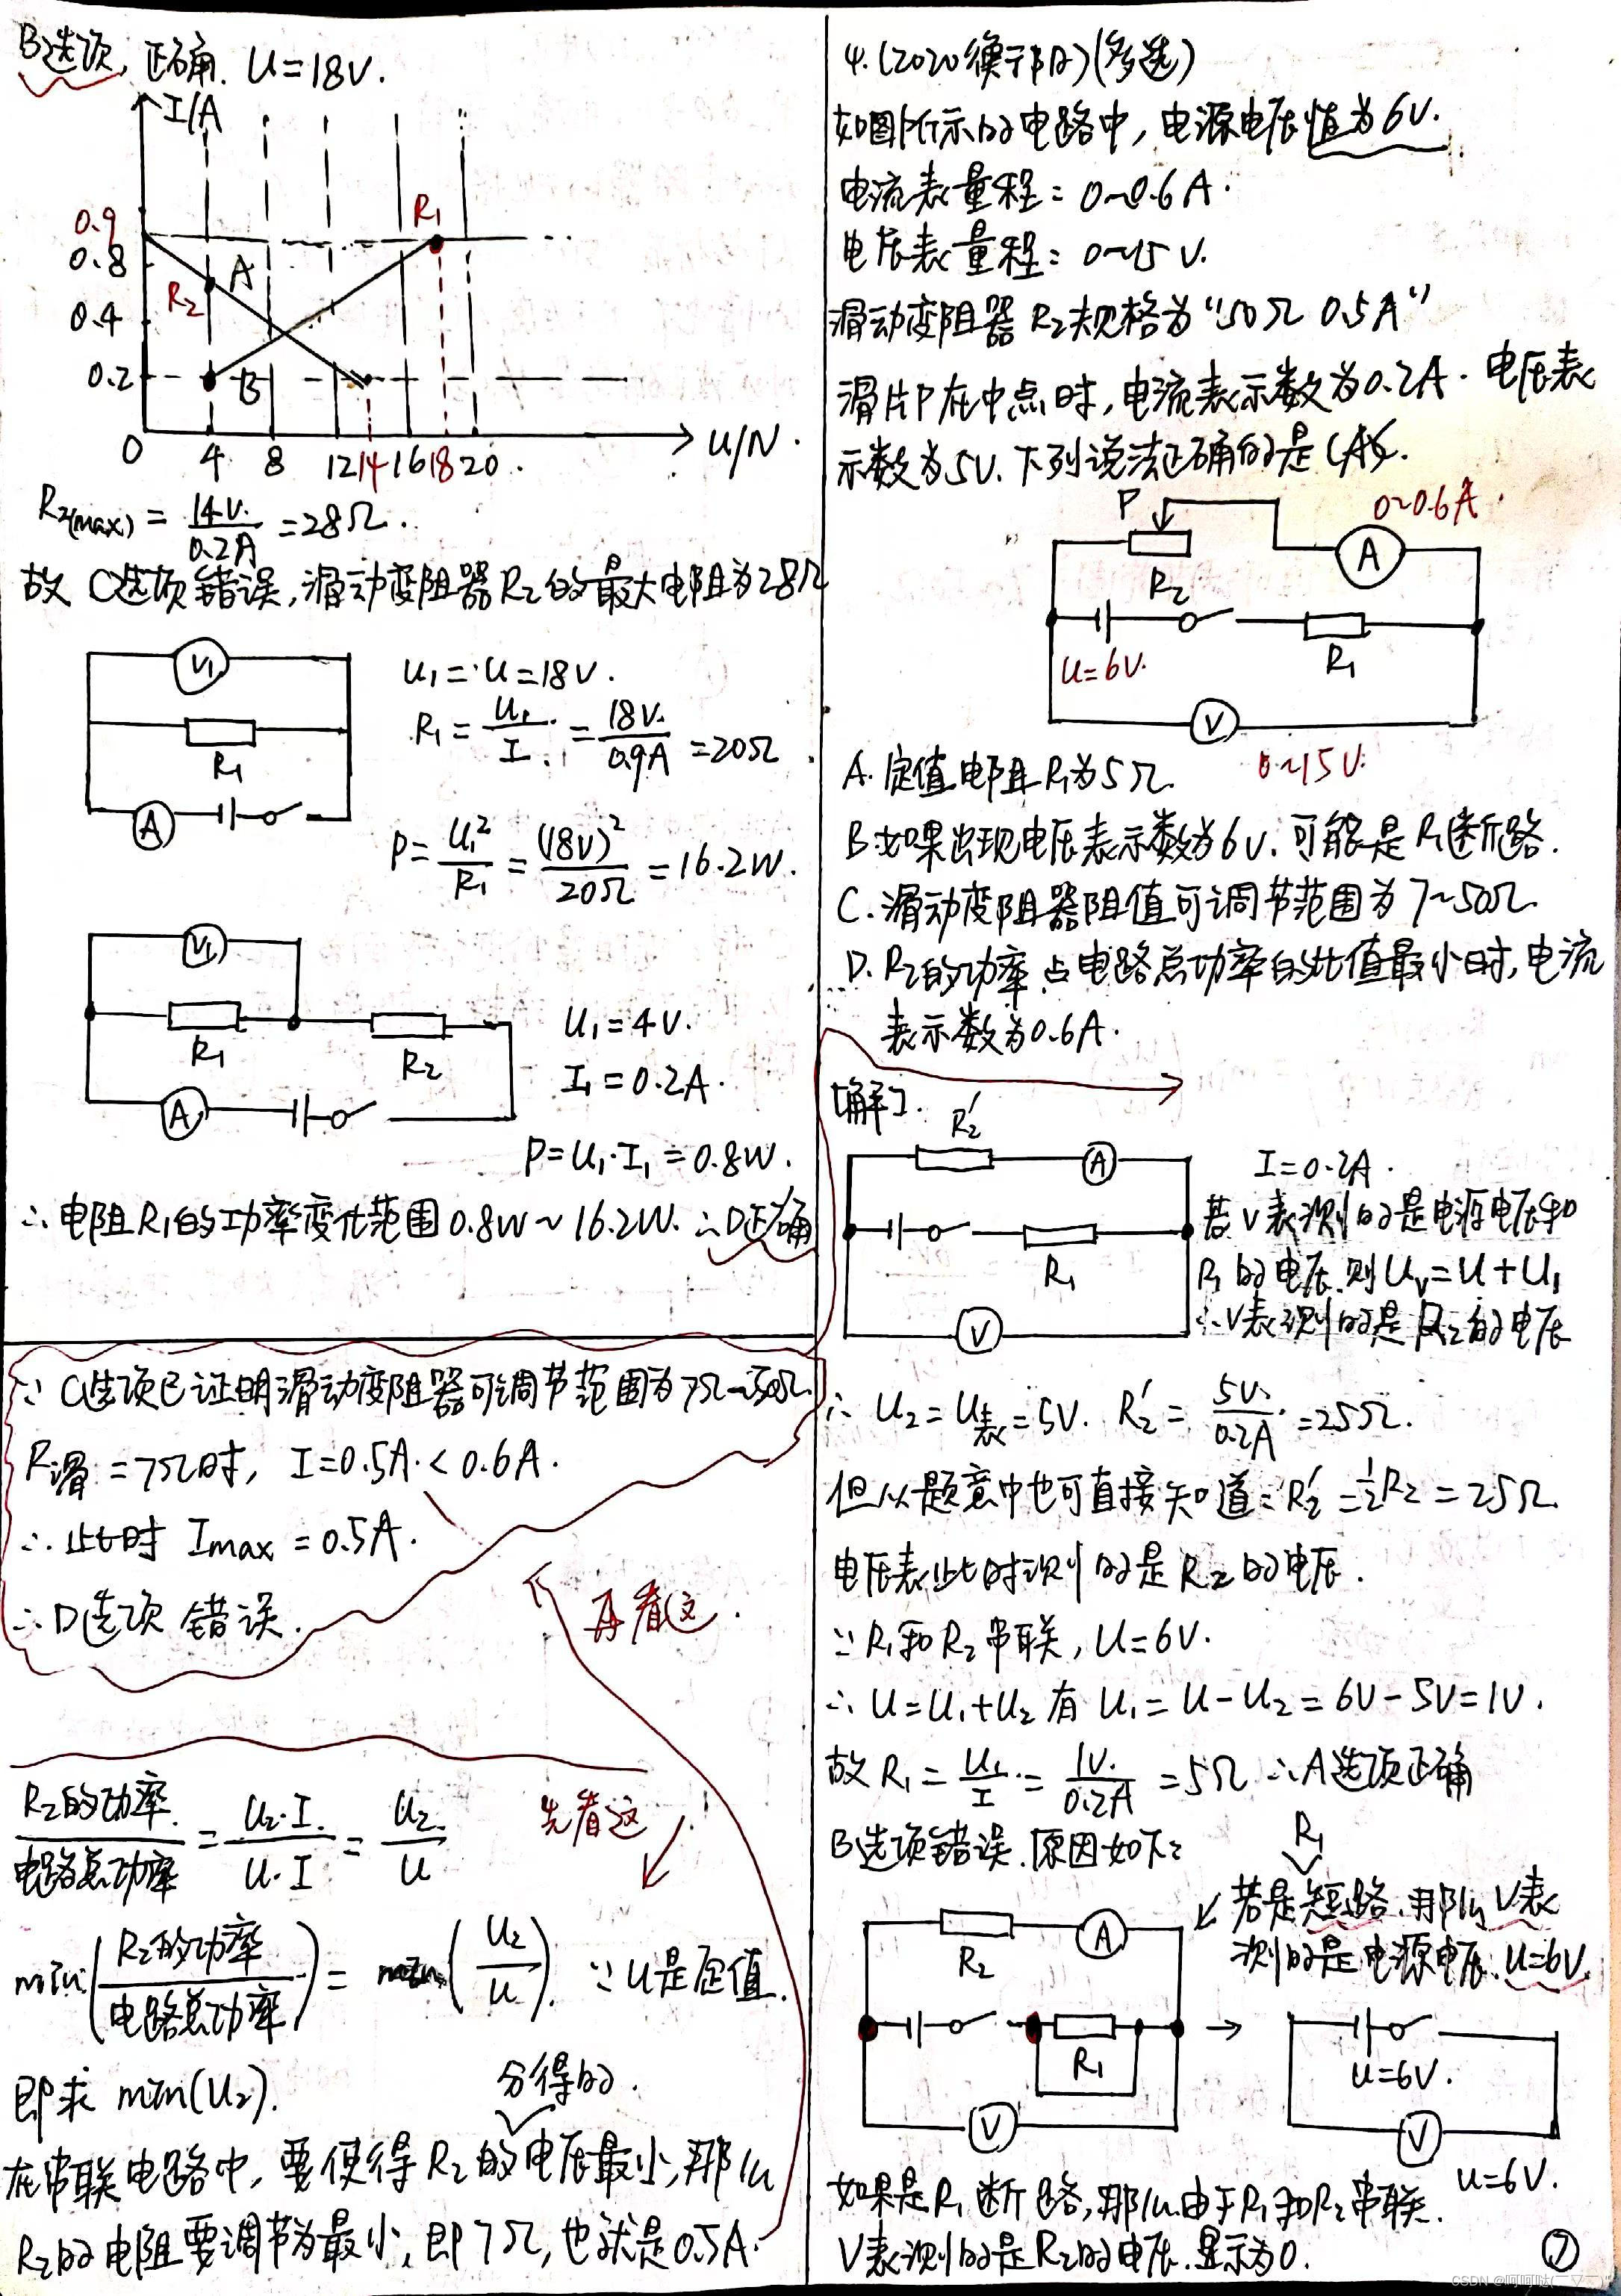 B选项,正确. U=18V.
I/A
0.9
0.8
0.4
0.2
R₁
R₂
A
B
0 4 8 12 14 16 18 20
U/V.
R₂(max) = 14V/0.2A = 28Ω.
故 C选项错误,滑动变阻器R₂的最大电阻为28Ω
V₁
R₁
A
U₁=U=18V.
R₁ = U₁/I = 18V/0.9A = 20Ω
P = U₁²/R₁ = (18V)²/20Ω = 16.2W.
V₁
R₁
R₂
A
U₁=4V.
I₁=0.2A.
P=U₁·I₁=0.8W.
∴电阻R₁的功率变化范围0.8W~16.2W. ∴D正确
∵ C选项已证明滑动变阻器可调节范围为7Ω~50Ω.
R滑=7Ω时, I=0.5A<0.6A.
∴此时 Imax=0.5A.
∴D选项 错误.
再看这.
先看这
R₂的功率/电路总功率 = U₂·I/U·I = U₂/U
min(R₂的功率/电路总功率) = min(U₂/U). ∵U是定值.
即求 min(U₂).
分得的.
在串联电路中,要使得R₂的电压最小,那么
R₂的电阻要调节为最小,即7Ω,也就是0.5A.
4.(2020衡阳)(多选)
如图所示的电路中,电源电压恒为6V.
电流表量程: 0~0.6A.
电压表量程: 0~15V.
滑动变阻器 R₂规格为“50Ω 0.5A”
滑片P在中点时,电流表示数为0.2A. 电压表
示数为5V. 下列说法正确的是(AC).
P
0~0.6A.
A
R₂
U=6V.
R₁
V
0~15V.
A. 定值电阻R₁为5Ω.
B.如果出现电压表示数为6V.可能是R₁断路.
C.滑动变阻器阻值可调节范围为7~50Ω.
D.R₂的功率占电路总功率的比值最小时,电流
表示数为0.6A.
[解].
R₂′
A
R₁
V
I=0.2A.
若V表测的是电源电压和
R₁的电压.则Uᵥ=U+U₁
∴V表测的是R₂的电压
∴ U₂=U表=5V. R₂′ = 5V/0.2A = 25Ω.
但从题意中也可直接知道: R₂′=½R₂=25Ω.
电压表此时测的是R₂的电压.
∵R₁和R₂串联, U=6V.
∴U=U₁+U₂ 有 U₁=U-U₂=6V-5V=1V.
故R₁ = U₁/I = 1V/0.2A = 5Ω ∴A选项正确
B选项错误.原因如下:
R₁
若是短路.那么V表
测的是电源电压.U=6V.
R₂
A
R₁
V
U=6V.
V
U=6V.
如果是R₁断路,那么由于R₁和R₂串联.
V表测的是R₂的电压.显示为0.
⑦